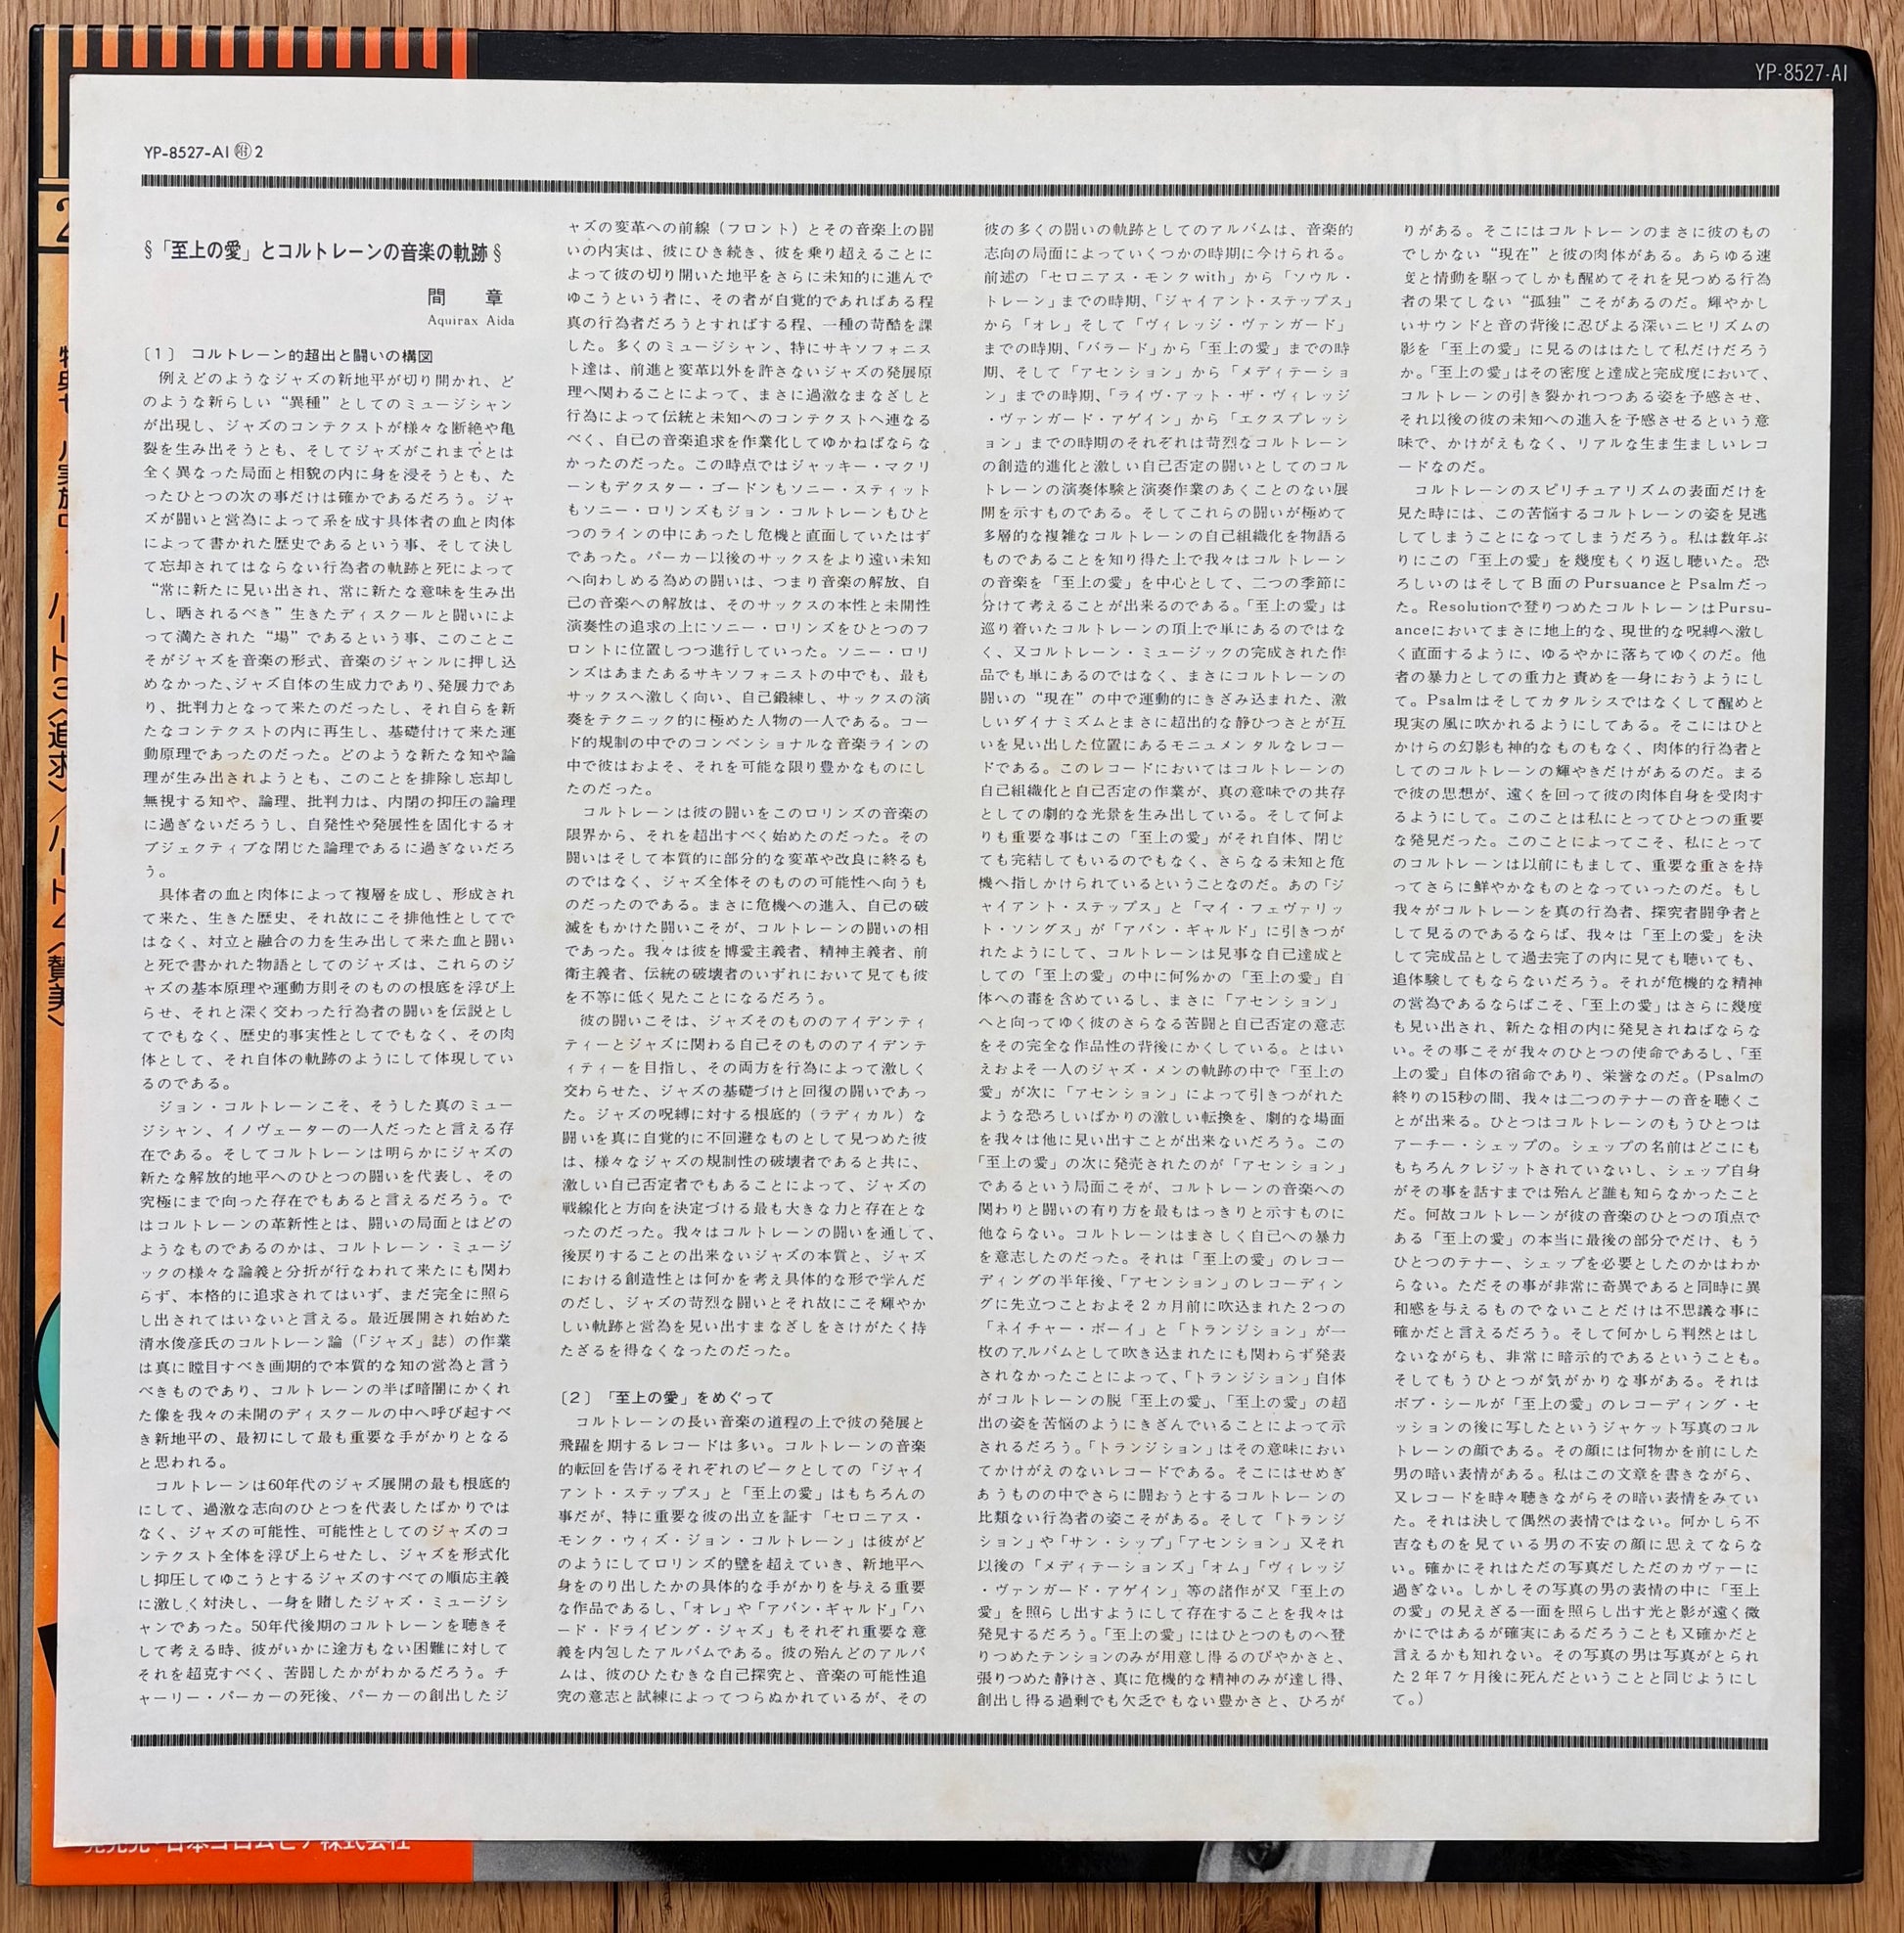 YP-8527-AI
YP-8527-AI 附 2
§「至上の愛」とコルトレーンの音楽の軌跡§
間　章
Aquirax Aida
〔1〕 コルトレーン的超出と闘いの構図
例えどのようなジャズの新地平が切り開かれ、ど
のような新らしい“異種”としてのミュージシャン
が出現し、ジャズのコンテクストが様々な断絶や亀
裂を生み出そうとも、そしてジャズがこれまでとは
全く異なった局面と相貌の内に身を浸そうとも、た
ったひとつの次の事だけは確かであるだろう。ジャ
ズが闘いと営為によって系を成す具体者の血と肉体
によって書かれた歴史であるという事、そして決し
て忘却されてはならない行為者の軌跡と死によって
“常に新たに見い出され、常に新たな意味を生み出
し、晒されるべき”生きたディスクールと闘いによ
って満たされた“場”であるという事、このことこ
そがジャズを音楽の形式、音楽のジャンルに押し込
めなかった、ジャズ自体の生成力であり、発展力であ
り、批判力となって来たのだったし、それ自らを新
たなコンテクストの内に再生し、基礎付けて来た運
動原理であったのだった。どのような新たな知や論
理が生み出されようとも、このことを排除し忘却し
無視する知や、論理、批判力は、内閉の抑圧の論理
に過ぎないだろうし、自発性や発展性を固化するオ
ブジェクティブな閉じた論理であるに過ぎないだろ
う。
具体者の血と肉体によって複層を成し、形成され
て来た、生きた歴史、それ故にこそ排他性としてで
はなく、対立と融合の力を生み出して来た血と闘い
と死で書かれた物語としてのジャズは、これらのジ
ャズの基本原理や運動方則そのものの根底を浮び上
らせ、それと深く交わった行為者の闘いを伝説とし
てでもなく、歴史的事実性としてでもなく、その肉
体として、それ自体の軌跡のようにして体現してい
るのである。
ジョン・コルトレーンこそ、そうした真のミュー
ジシャン、イノヴェーターの一人だったと言える存
在である。そしてコルトレーンは明らかにジャズの
新たな解放的地平へのひとつの闘いを代表し、その
究極にまで向った存在でもあると言えるだろう。で
はコルトレーンの革新性とは、闘いの局面とはどの
ようなものであるのかは、コルトレーン・ミュージ
ックの様々な論義と分折が行なわれて来たにも関わ
らず、本格的に追求されてはいず、まだ完全に照ら
し出されてはいないと言える。最近展開され始めた
清水俊彦氏のコルトレーン論（「ジャズ」誌）の作業
は真に瞠目すべき画期的で本質的な知の営為と言う
べきものであり、コルトレーンの半ば暗闇にかくれ
た像を我々の未開のディスクールの中へ呼び起すべ
き新地平の、最初にして最も重要な手がかりとなる
と思われる。
コルトレーンは60年代のジャズ展開の最も根底的
にして、過激な志向のひとつを代表したばかりでは
なく、ジャズの可能性、可能性としてのジャズのコ
ンテクスト全体を浮び上らせたし、ジャズを形式化
し抑圧してゆこうとするジャズのすべての順応主義
に激しく対決し、一身を賭したジャズ・ミュージシ
ャンであった。50年代後期のコルトレーンを聴きそ
して考える時、彼がいかに途方もない困難に対して
それを超克すべく、苦闘したかがわかるだろう。チ
ャーリー・パーカーの死後、パーカーの創出したジ
ャズの変革への前線（フロント）とその音楽上の闘
いの内実は、彼にひき続き、彼を乗り超えることに
よって彼の切り開いた地平をさらに未知的に進んで
ゆこうという者に、その者が自覚的であればある程
真の行為者だろうとすればする程、一種の苛酷を課
した。多くのミュージシャン、特にサキソフォニス
ト達は、前進と変革以外を許さないジャズの発展原
理へ関わることによって、まさに過激なまなざしと
行為によって伝統と未知へのコンテクストへ連なる
べく、自己の音楽追求を作業化してゆかねばならな
かったのだった。この時点ではジャッキー・マクリ
ーンもデクスター・ゴードンもソニー・スティット
もソニー・ロリンズもジョン・コルトレーンもひと
つのラインの中にあったし危機と直面していたはず
であった。パーカー以後のサックスをより遠い未知
へ向わしめる為めの闘いは、つまり音楽の解放、自
己の音楽への解放は、そのサックスの本性と未開性
演奏性の追求の上にソニー・ロリンズをひとつのフ
ロントに位置しつつ進行していった。ソニー・ロリ
ンズはあまたあるサキソフォニストの中でも、最も
サックスへ激しく向い、自己鍛練し、サックスの演
奏をテクニック的に極めた人物の一人である。コー
ド的規制の中でのコンベンショナルな音楽ラインの
中で彼はおよそ、それを可能な限り豊かなものにし
たのだった。
コルトレーンは彼の闘いをこのロリンズの音楽の
限界から、それを超出すべく始めたのだった。その
闘いはそして本質的に部分的な変革や改良に終るも
のではなく、ジャズ全体そのものの可能性へ向うも
のだったのである。まさに危機への進入、自己の破
滅をもかけた闘いこそが、コルトレーンの闘いの相
であった。我々は彼を博愛主義者、精神主義者、前
衛主義者、伝統の破壊者のいずれにおいて見ても彼
を不等に低く見たことになるだろう。
彼の闘いこそは、ジャズそのもののアイデンティ
ティーとジャズに関わる自己そのもののアイデンテ
ィティーを目指し、その両方を行為によって激しく
交わらせた、ジャズの基礎づけと回復の闘いであっ
た。ジャズの呪縛に対する根底的（ラディカル）な
闘いを真に自覚的に不回避なものとして見つめた彼
は、様々なジャズの規制性の破壊者であると共に、
激しい自己否定者でもあることによって、ジャズの
戦線化と方向を決定づける最も大きな力と存在とな
ったのだった。我々はコルトレーンの闘いを通して、
後戻りすることの出来ないジャズの本質と、ジャズ
における創造性とは何かを考え具体的な形で学んだ
のだし、ジャズの苛烈な闘いとそれ故にこそ輝やか
しい軌跡と営為を見い出すまなざしをさけがたく持
たざるを得なくなったのだった。
〔2〕 「至上の愛」をめぐって
コルトレーンの長い音楽の道程の上で彼の発展と
飛躍を期するレコードは多い。コルトレーンの音楽
的転回を告げるそれぞれのピークとしての「ジャイ
アント・ステップス」と「至上の愛」はもちろんの
事だが、特に重要な彼の出立を証す「セロニアス・
モンク・ウィズ・ジョン・コルトレーン」は彼がど
のようにしてロリンズ的壁を超えていき、新地平へ
身をのり出したかの具体的な手がかりを与える重要
な作品であるし、「オレ」や「アバン・ギャルド」「ハ
ード・ドライビング・ジャズ」もそれぞれ重要な意
義を内包したアルバムである。彼の殆んどのアルバ
ムは、彼のひたむきな自己探究と、音楽の可能性追
究の意志と試練によってつらぬかれているが、その
彼の多くの闘いの軌跡としてのアルバムは、音楽的
志向の局面によっていくつかの時期に今けられる。
前述の「セロニアス・モンクwith」から「ソウル・
トレーン」までの時期、「ジャイアント・ステップス」
から「オレ」そして「ヴィレッジ・ヴァンガード」
までの時期、「バラード」から「至上の愛」までの時
期、そして「アセンション」から「メディテーショ
ン」までの時期、「ライヴ・アット・ザ・ヴィレッジ
・ヴァンガード・アゲイン」から「エクスプレッシ
ョン」までの時期のそれぞれは苛烈なコルトレーン
の創造的進化と激しい自己否定の闘いとしてのコル
トレーンの演奏体験と演奏作業のあくことのない展
開を示すものである。そしてこれらの闘いが極めて
多層的な複雑なコルトレーンの自己組織化を物語る
ものであることを知り得た上で我々はコルトレーン
の音楽を「至上の愛」を中心として、二つの季節に
分けて考えることが出来るのである。「至上の愛」は
巡り着いたコルトレーンの頂上で単にあるのではな
く、又コルトレーン・ミュージックの完成された作
品でも単にあるのではなく、まさにコルトレーンの
闘いの“現在”の中で運動的にきざみ込まれた、激
しいダイナミズムとまさに超出的な静ひつさとが互
いを見い出した位置にあるモニュメンタルなレコー
ドである。このレコードにおいてはコルトレーンの
自己組織化と自己否定の作業が、真の意味での共存
としての劇的な光景を生み出している。そして何よ
りも重要な事はこの「至上の愛」がそれ自体、閉じ
ても完結してもいるのでもなく、さらなる未知と危
機へ指しかけられているということなのだ。あの「ジ
ャイアント・ステップス」と「マイ・フェヴァリッ
ト・ソングス」が「アバン・ギャルド」に引きつが
れたようにして、コルトレーンは見事な自己達成と
しての「至上の愛」の中に何％かの「至上の愛」自
体への毒を含めているし、まさに「アセンション」
へと向ってゆく彼のさらなる苦闘と自己否定の意志
をその完全な作品性の背後にかくしている。とはい
えおよそ一人のジャズ・メンの軌跡の中で「至上の
愛」が次に「アセンション」によって引きつがれた
ような恐ろしいばかりの激しい転換を、劇的な場面
を我々は他に見い出すことが出来ないだろう。この
「至上の愛」の次に発売されたのが「アセンション」
であるという局面こそが、コルトレーンの音楽への
関わりと闘いの有り方を最もはっきりと示すものに
他ならない。コルトレーンはまさしく自己への暴力
を意志したのだった。それは「至上の愛」のレコー
ディングの半年後、「アセンション」のレコーディン
グに先立つことおよそ2ヵ月前に吹込まれた2つの
「ネイチャー・ボーイ」と「トランジション」が一
枚のアルバムとして吹き込まれたにも関わらず発表
されなかったことによって、「トランジション」自体
がコルトレーンの脱「至上の愛」、「至上の愛」の超
出の姿を苦悩のようにきざんでいることによって示
されるだろう。「トランジション」はその意味におい
てかけがえのないレコードである。そこにはせめぎ
あうものの中でさらに闘おうとするコルトレーンの
比類ない行為者の姿こそがある。そして「トランジ
ション」や「サン・シップ」「アセンション」又それ
以後の「メディテーションズ」「オム」「ヴィレッジ
・ヴァンガード・アゲイン」等の諸作が又「至上の
愛」を照らし出すようにして存在することを我々は
発見するだろう。「至上の愛」にはひとつのものへ登
りつめたテンションのみが用意し得るのびやかさと、
張りつめた静けさ、真に危機的な精神のみが達し得、
創出し得る過剰でも欠乏でもない豊かさと、ひろが
りがある。そこにはコルトレーンのまさに彼のもの
でしかない“現在”と彼の肉体がある。あらゆる速
度と情動を駆ってしかも醒めてそれを見つめる行為
者の果てしない“孤独”こそがあるのだ。輝やかし
いサウンドと音の背後に忍びよる深いニヒリズムの
影を「至上の愛」に見るのははたして私だけだろう
か。「至上の愛」はその密度と達成と完成度において、
コルトレーンの引き裂かれつつある姿を予感させ、
それ以後の彼の未知への進入を予感させるという意
味で、かけがえもなく、リアルな生ま生ましいレコ
ードなのだ。
コルトレーンのスピリチュアリズムの表面だけを
見た時には、この苦悩するコルトレーンの姿を見逃
してしまうことになってしまうだろう。私は数年ぶ
りにこの「至上の愛」を幾度もくり返し聴いた。恐
ろしいのはそしてB面のPursuanceとPsalmだっ
た。Resolutionで登りつめたコルトレーンはPursu-
anceにおいてまさに地上的な、現世的な呪縛へ激し
く直面するように、ゆるやかに落ちてゆくのだ。他
者の暴力としての重力と責めを一身におうようにし
て。Psalmはそしてカタルシスではなくして醒めと
現実の風に吹かれるようにしてある。そこにはひと
かけらの幻影も神的なものもなく、肉体的行為者と
してのコルトレーンの輝やきだけがあるのだ。まる
で彼の思想が、遠くを回って彼の肉体自身を受肉す
るようにして。このことは私にとってひとつの重要
な発見だった。このことによってこそ、私にとって
のコルトレーンは以前にもまして、重要な重さを持
ってさらに鮮やかなものとなっていったのだ。もし
我々がコルトレーンを真の行為者、探究者闘争者と
して見るのであるならば、我々は「至上の愛」を決
して完成品として過去完了の内に見ても聴いても、
追体験してもならないだろう。それが危機的な精神
の営為であるならばこそ、「至上の愛」はさらに幾度
も見い出され、新たな相の内に発見されねばならな
い。その事こそが我々のひとつの使命であるし、「至
上の愛」自体の宿命であり、栄誉なのだ。（Psalmの
終りの15秒の間、我々は二つのテナーの音を聴くこ
とが出来る。ひとつはコルトレーンのもうひとつは
アーチー・シェップの。シェップの名前はどこにも
もちろんクレジットされていないし、シェップ自身
がその事を話すまでは殆んど誰も知らなかったこと
だ。何故コルトレーンが彼の音楽のひとつの頂点で
ある「至上の愛」の本当に最後の部分でだけ、もう
ひとつのテナー、シェップを必要としたのかはわか
らない。ただその事が非常に奇異であると同時に異
和感を与えるものでないことだけは不思議な事に
確かだと言えるだろう。そして何かしら判然とはし
ないながらも、非常に暗示的であるということも。
そしてもうひとつが気がかりな事がある。それは
ボブ・シールが「至上の愛」のレコーディング・セ
ッションの後に写したというジャケット写真のコル
トレーンの顔である。その顔には何物かを前にした
男の暗い表情がある。私はこの文章を書きながら、
又レコードを時々聴きながらその暗い表情をみてい
た。それは決して偶然の表情ではない。何かしら不
吉なものを見ている男の不安の顔に思えてならな
い。確かにそれはただの写真だしただのカヴァーに
過ぎない。しかしその写真の男の表情の中に「至上
の愛」の見えざる一面を照らし出す光と影が遠く微
かにではあるが確実にあるだろうことも又確かだと
言えるかも知れない。その写真の男は写真がとられ
た2年7ヶ月後に死んだということと同じようにし
て。）